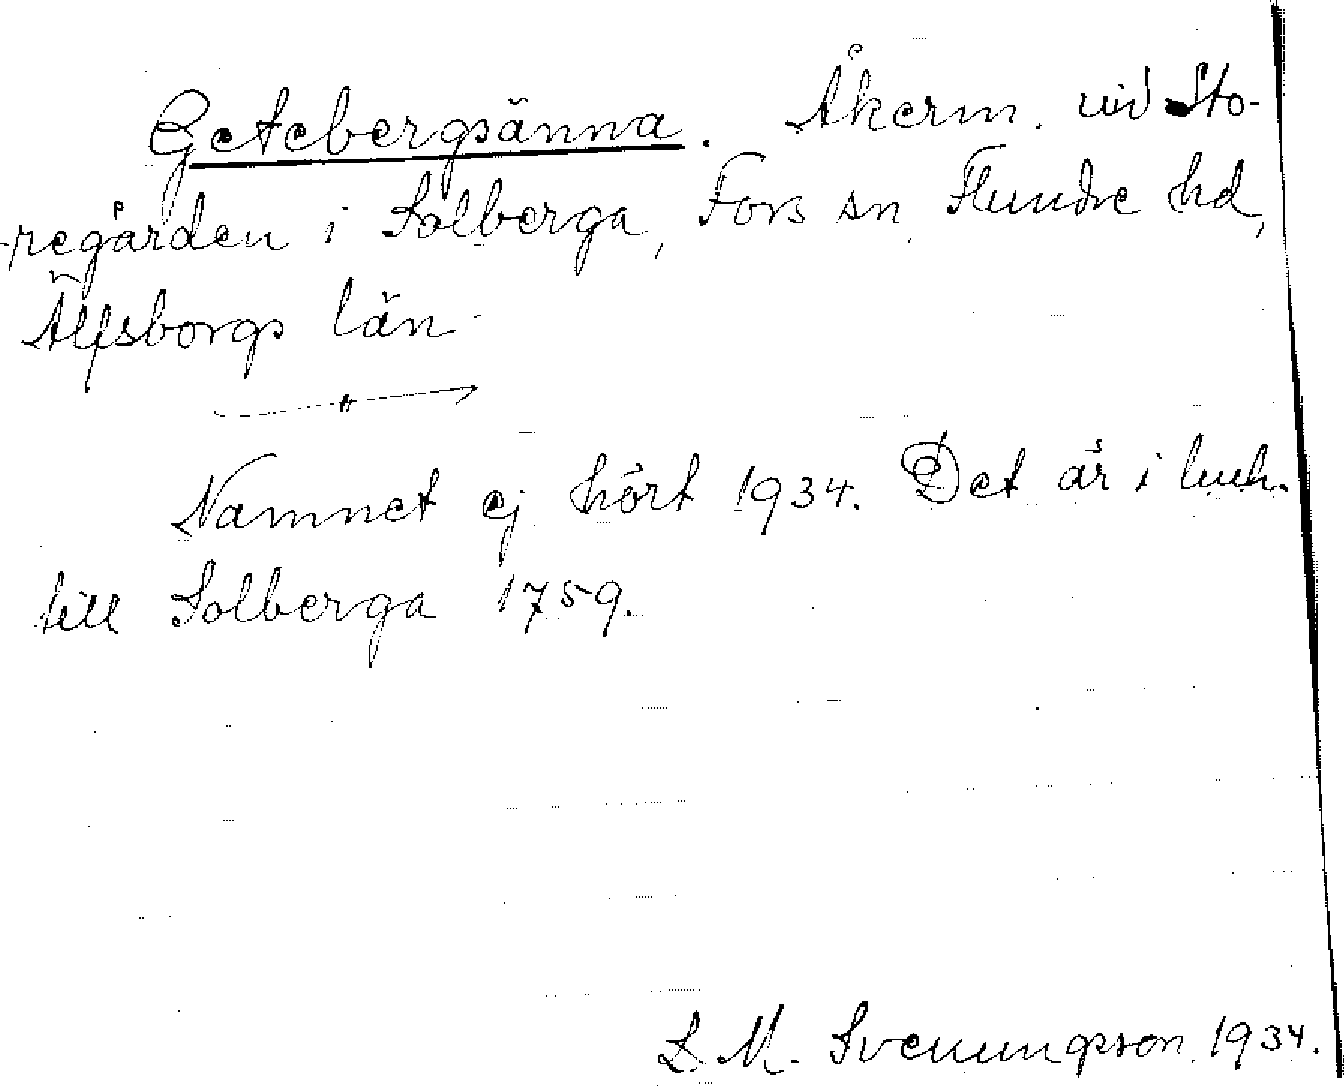 Getebergsänna. Åkerm. vid Sto-
regården i Solberga, Fors sn, Flundre hd,
Älfsborgs län.
Namnet ej hört 1934. Det är i
till Solberga 1759.
L. M. Svenungsson. 1934.